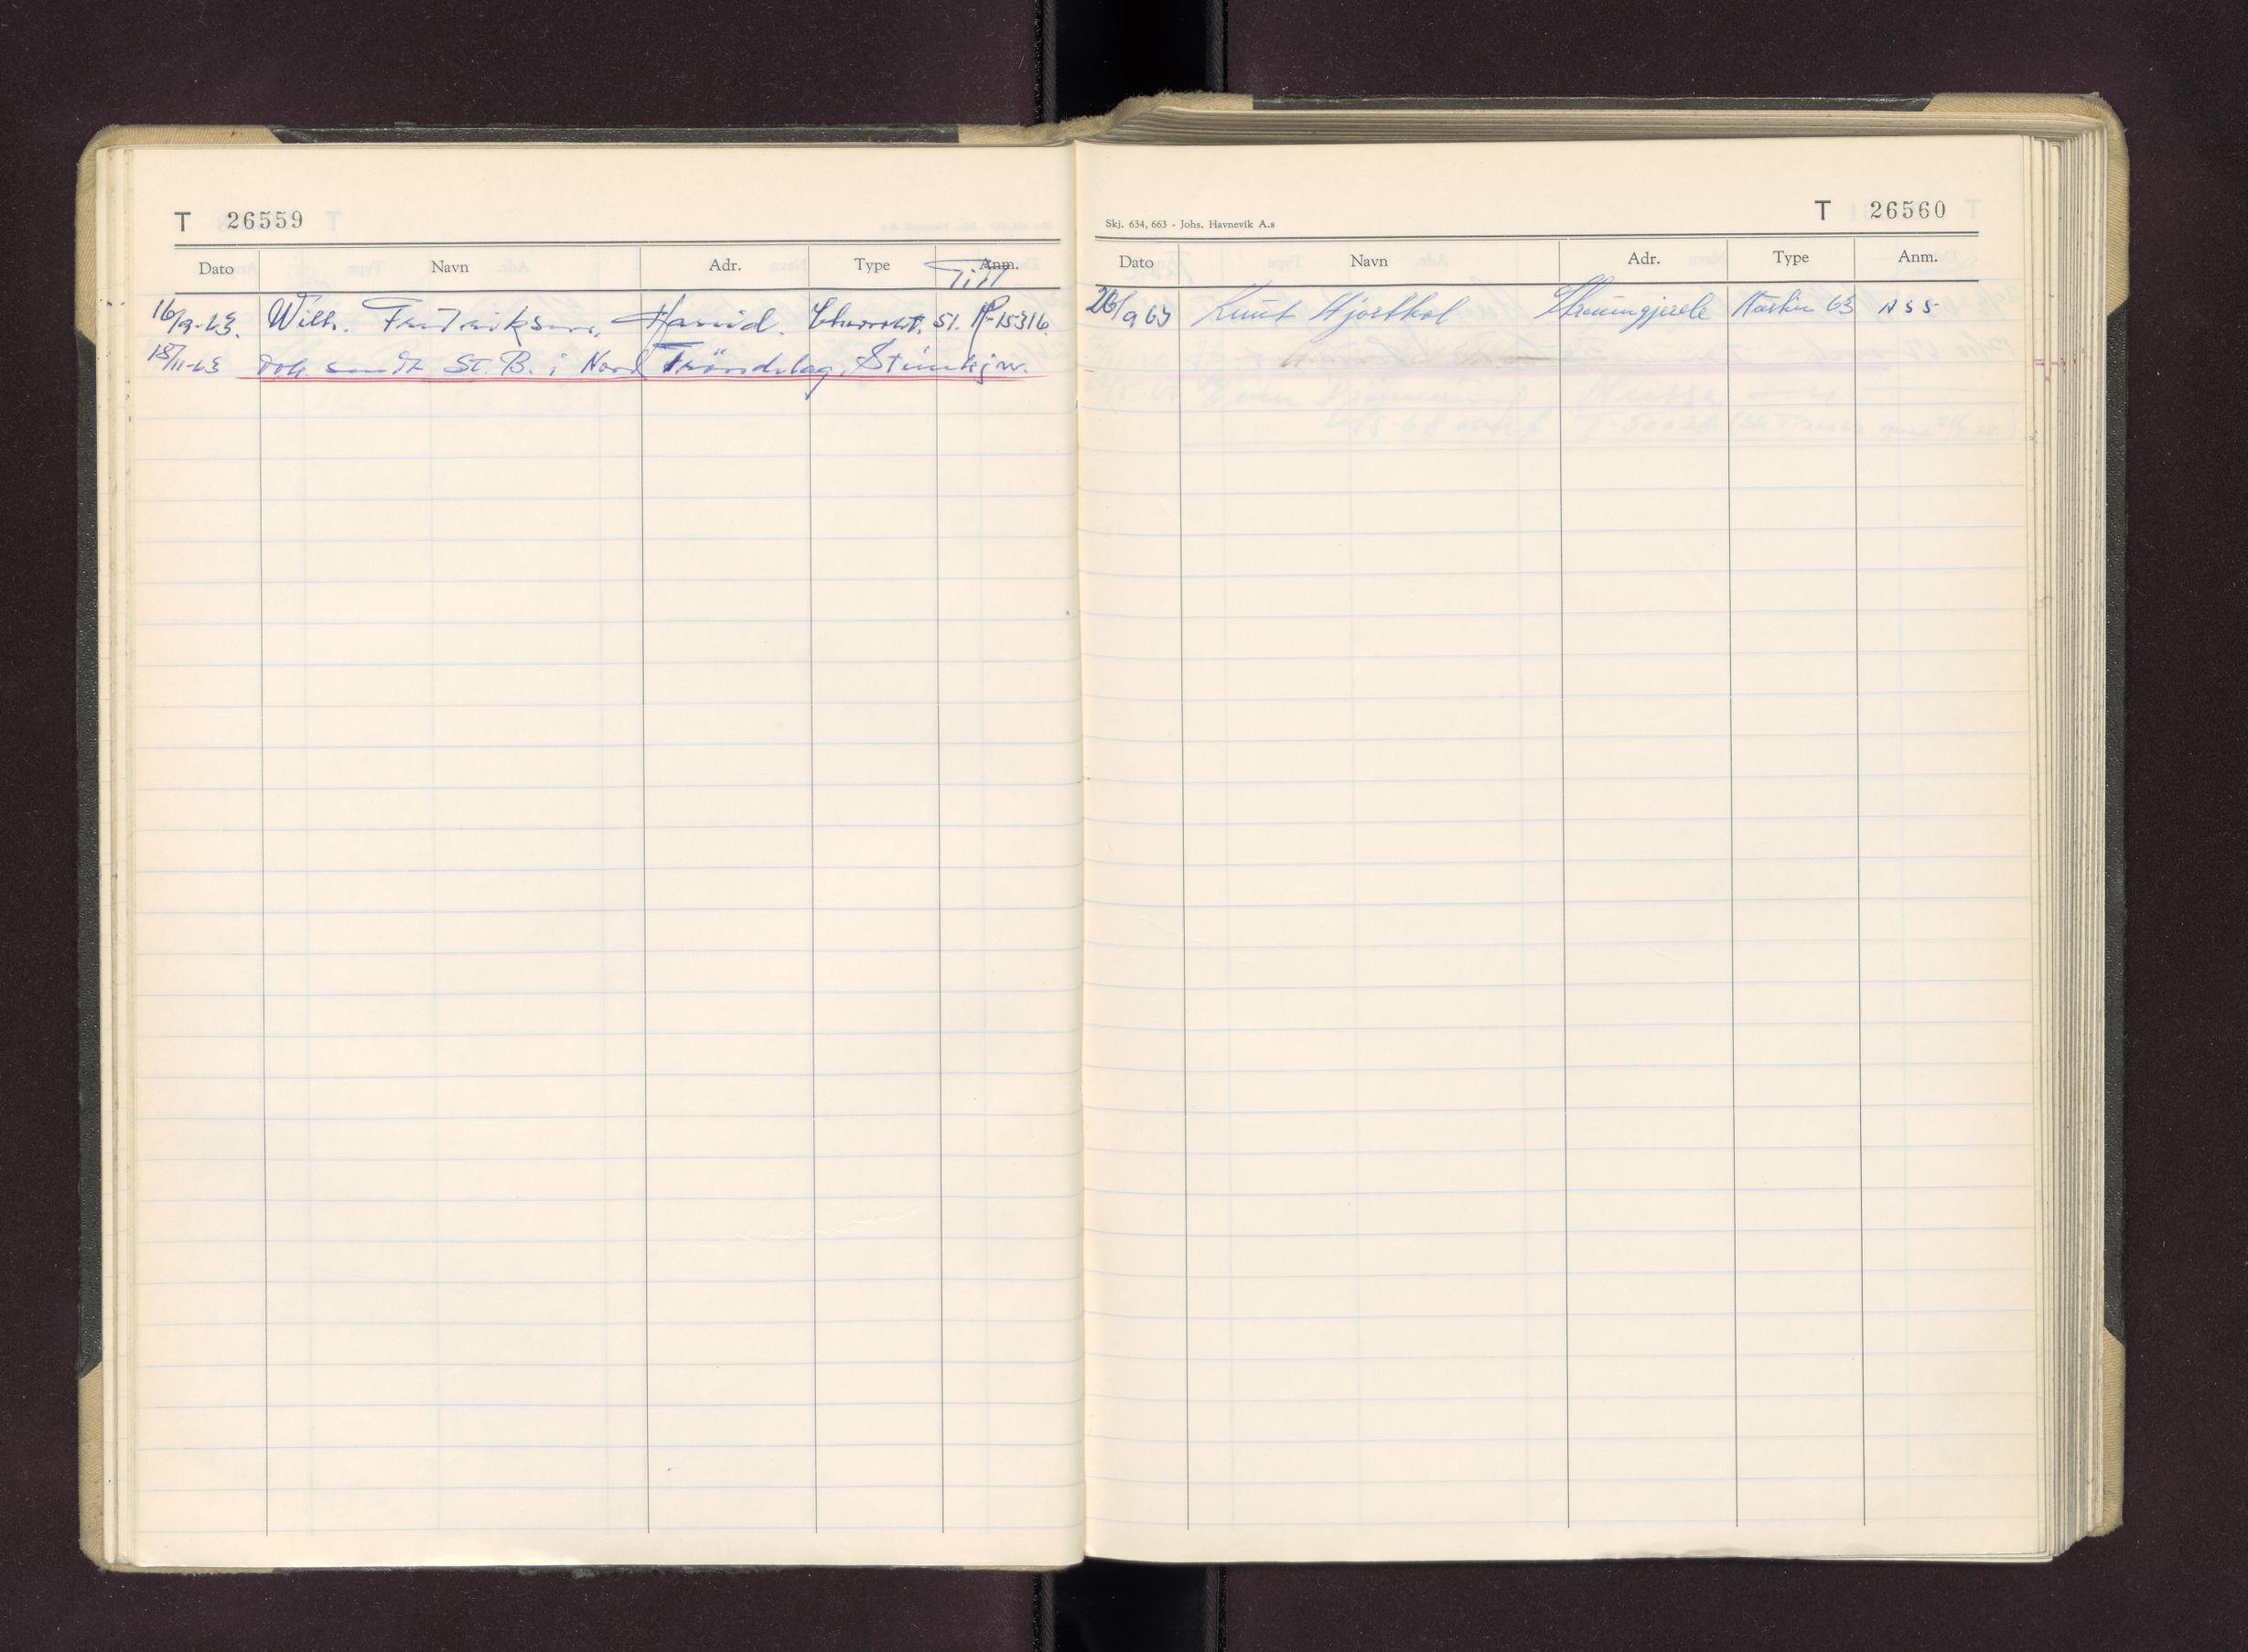 T 26559
Dato Navn Adr. Type Anm.
Till
16/9-63. Wilh. Fredriksen, Hareid. Chevrolet, St. P-15316.
18/11-63 Dok sendt St. B. i Nord Trøndelag, Steinkjer.
Skj. 634, 663 - Johs. Havnevik A.s
T 26560
Dato Navn Adr. Type Anm.
26/9 63 Knut Hjorthol Austin 63 A 55